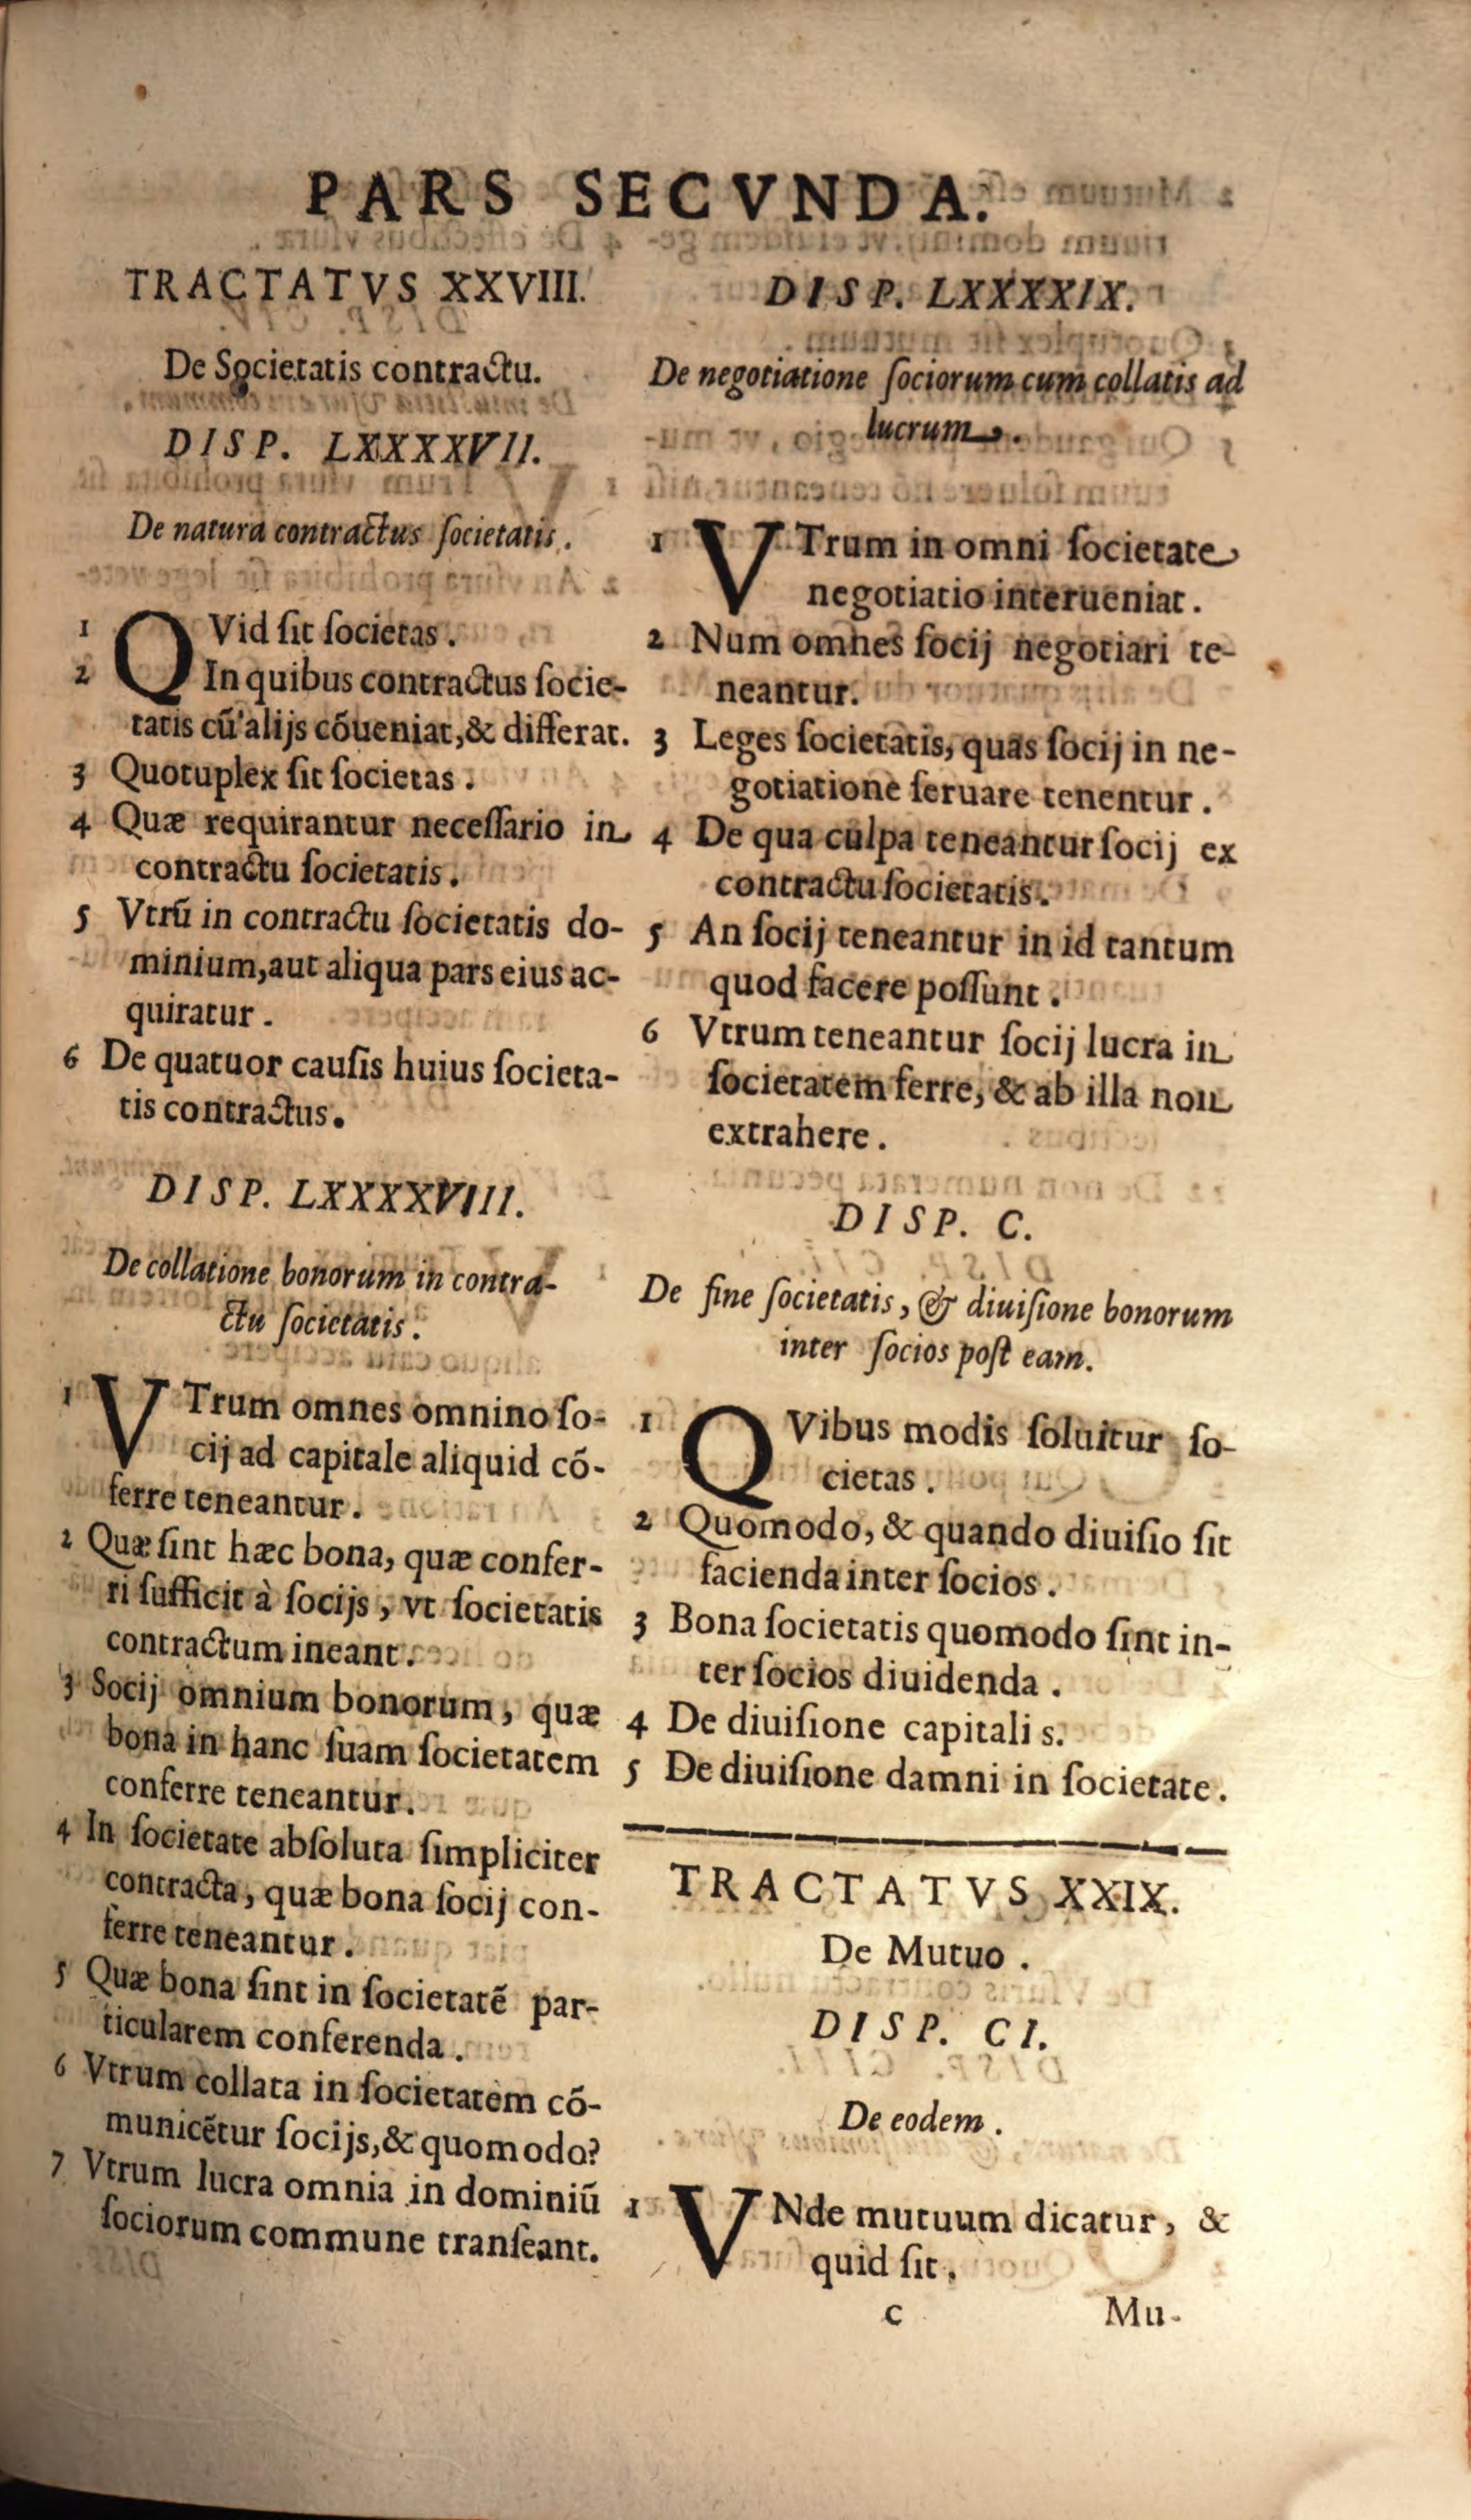 PARS SECVNDA.
TRACTATVS XXVIII.
De Societatis contractu.
DISP. LXXXXVII.
De natura contractus ſocietatis.
1 QVid ſit ſocietas.
2 In quibus contractus ſocie-
tatis cũ alijs cõueniat, & differat.
3 Quotuplex ſit ſocietas.
4 Quæ requirantur neceſſario in
contractu ſocietatis.
5 Vtrũ in contractu ſocietatis do-
minium, aut aliqua pars eius ac-
quiratur.
6 De quatuor cauſis huius ſocieta-
tis contractus.
DISP. LXXXXVIII.
De collatione bonorum in contra-
ctu ſocietatis.
1 VTrum omnes omnino ſo-
cij ad capitale aliquid cõ-
ferre teneantur.
2 Quæ ſint hæc bona, quæ confer-
ri ſufficit à ſocijs, vt ſocietatis
contractum ineant.
3 Socij omnium bonorum, quæ
bona in hanc ſuam ſocietatem
conferre teneantur.
4 In ſocietate abſoluta ſimpliciter
contracta, quæ bona ſocij con-
ferre teneantur.
5 Quæ bona ſint in ſocietatẽ par-
ticularem conferenda.
6 Vtrum collata in ſocietatem cõ-
municẽtur ſocijs, & quomodo?
7 Vtrum lucra omnia in dominiũ
ſociorum commune tranſeant.
DISP. LXXXXIX.
De negotiatione ſociorum cum collatis ad
lucrum.
1 VTrum in omni ſocietate
negotiatio interueniat.
2 Num omnes ſocij negotiari te-
neantur.
3 Leges ſocietatis, quas ſocij in ne-
gotiatione ſeruare tenentur.
4 De qua culpa teneantur ſocij ex
contractu ſocietatis.
5 An ſocij teneantur in id tantum
quod facere poſſunt.
6 Vtrum teneantur ſocij lucra in
ſocietatem ferre, & ab illa non
extrahere.
DISP. C.
De fine ſocietatis, & diuiſione bonorum
inter ſocios poſt eam.
1 QVibus modis ſoluitur ſo-
cietas.
2 Quomodo, & quando diuiſio ſit
facienda inter ſocios.
3 Bona ſocietatis quomodo ſint in-
ter ſocios diuidenda.
4 De diuiſione capitali s.
5 De diuiſione damni in ſocietate.
TRACTATVS XXIX.
De Mutuo.
DISP. CI.
De eodem.
1 VNde mutuum dicatur, &
quid ſit.
c Mu-